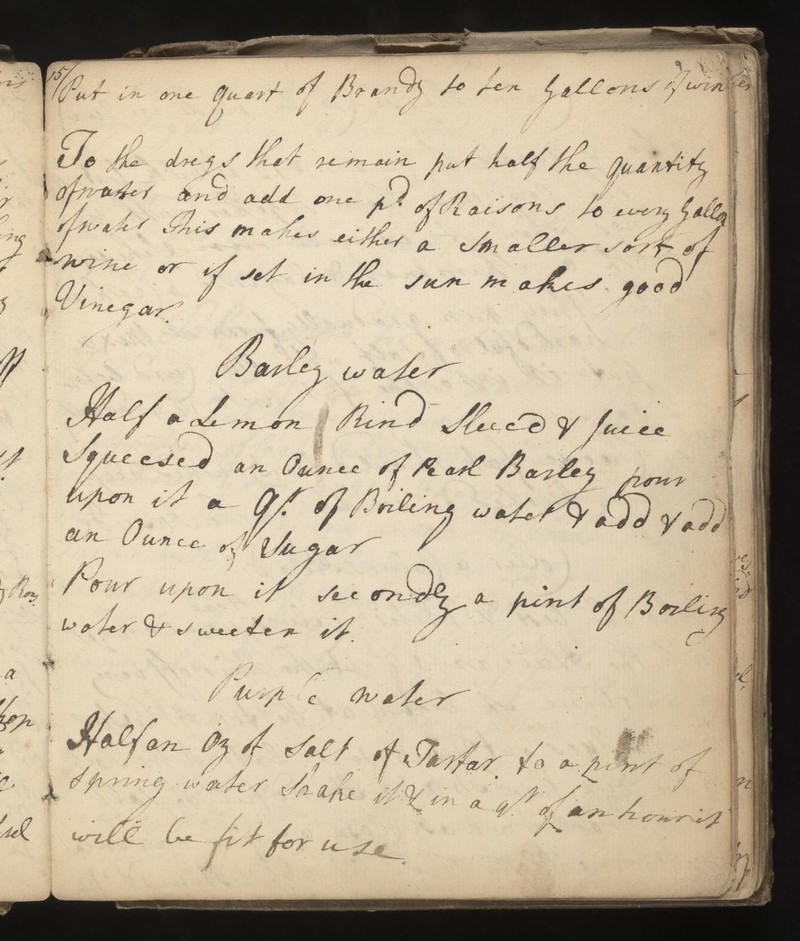 15/
Put in one quart of Brandy to ten Gallons of wine
To the dregs that remain put half the quantity
of water and add one pd. of Raisons to every Gallon
of water This makes either a smaller sort of
wine or if set in the sun makes good
Vinegar.
Barley water
Half a Lemon Rind Sleced & juice
Squeesed an Ounce of Pearl Barley pour
upon it a Qr. of Boiling water & add & add
an Ounce of Sugar
Pour upon it secondly a pint of Boiling
water & sweeten it.
Purple water
Half an Oz of Salt of Tartar to a pint of
spring water Shake it & in a qr. of an hour it
will be fit for use.